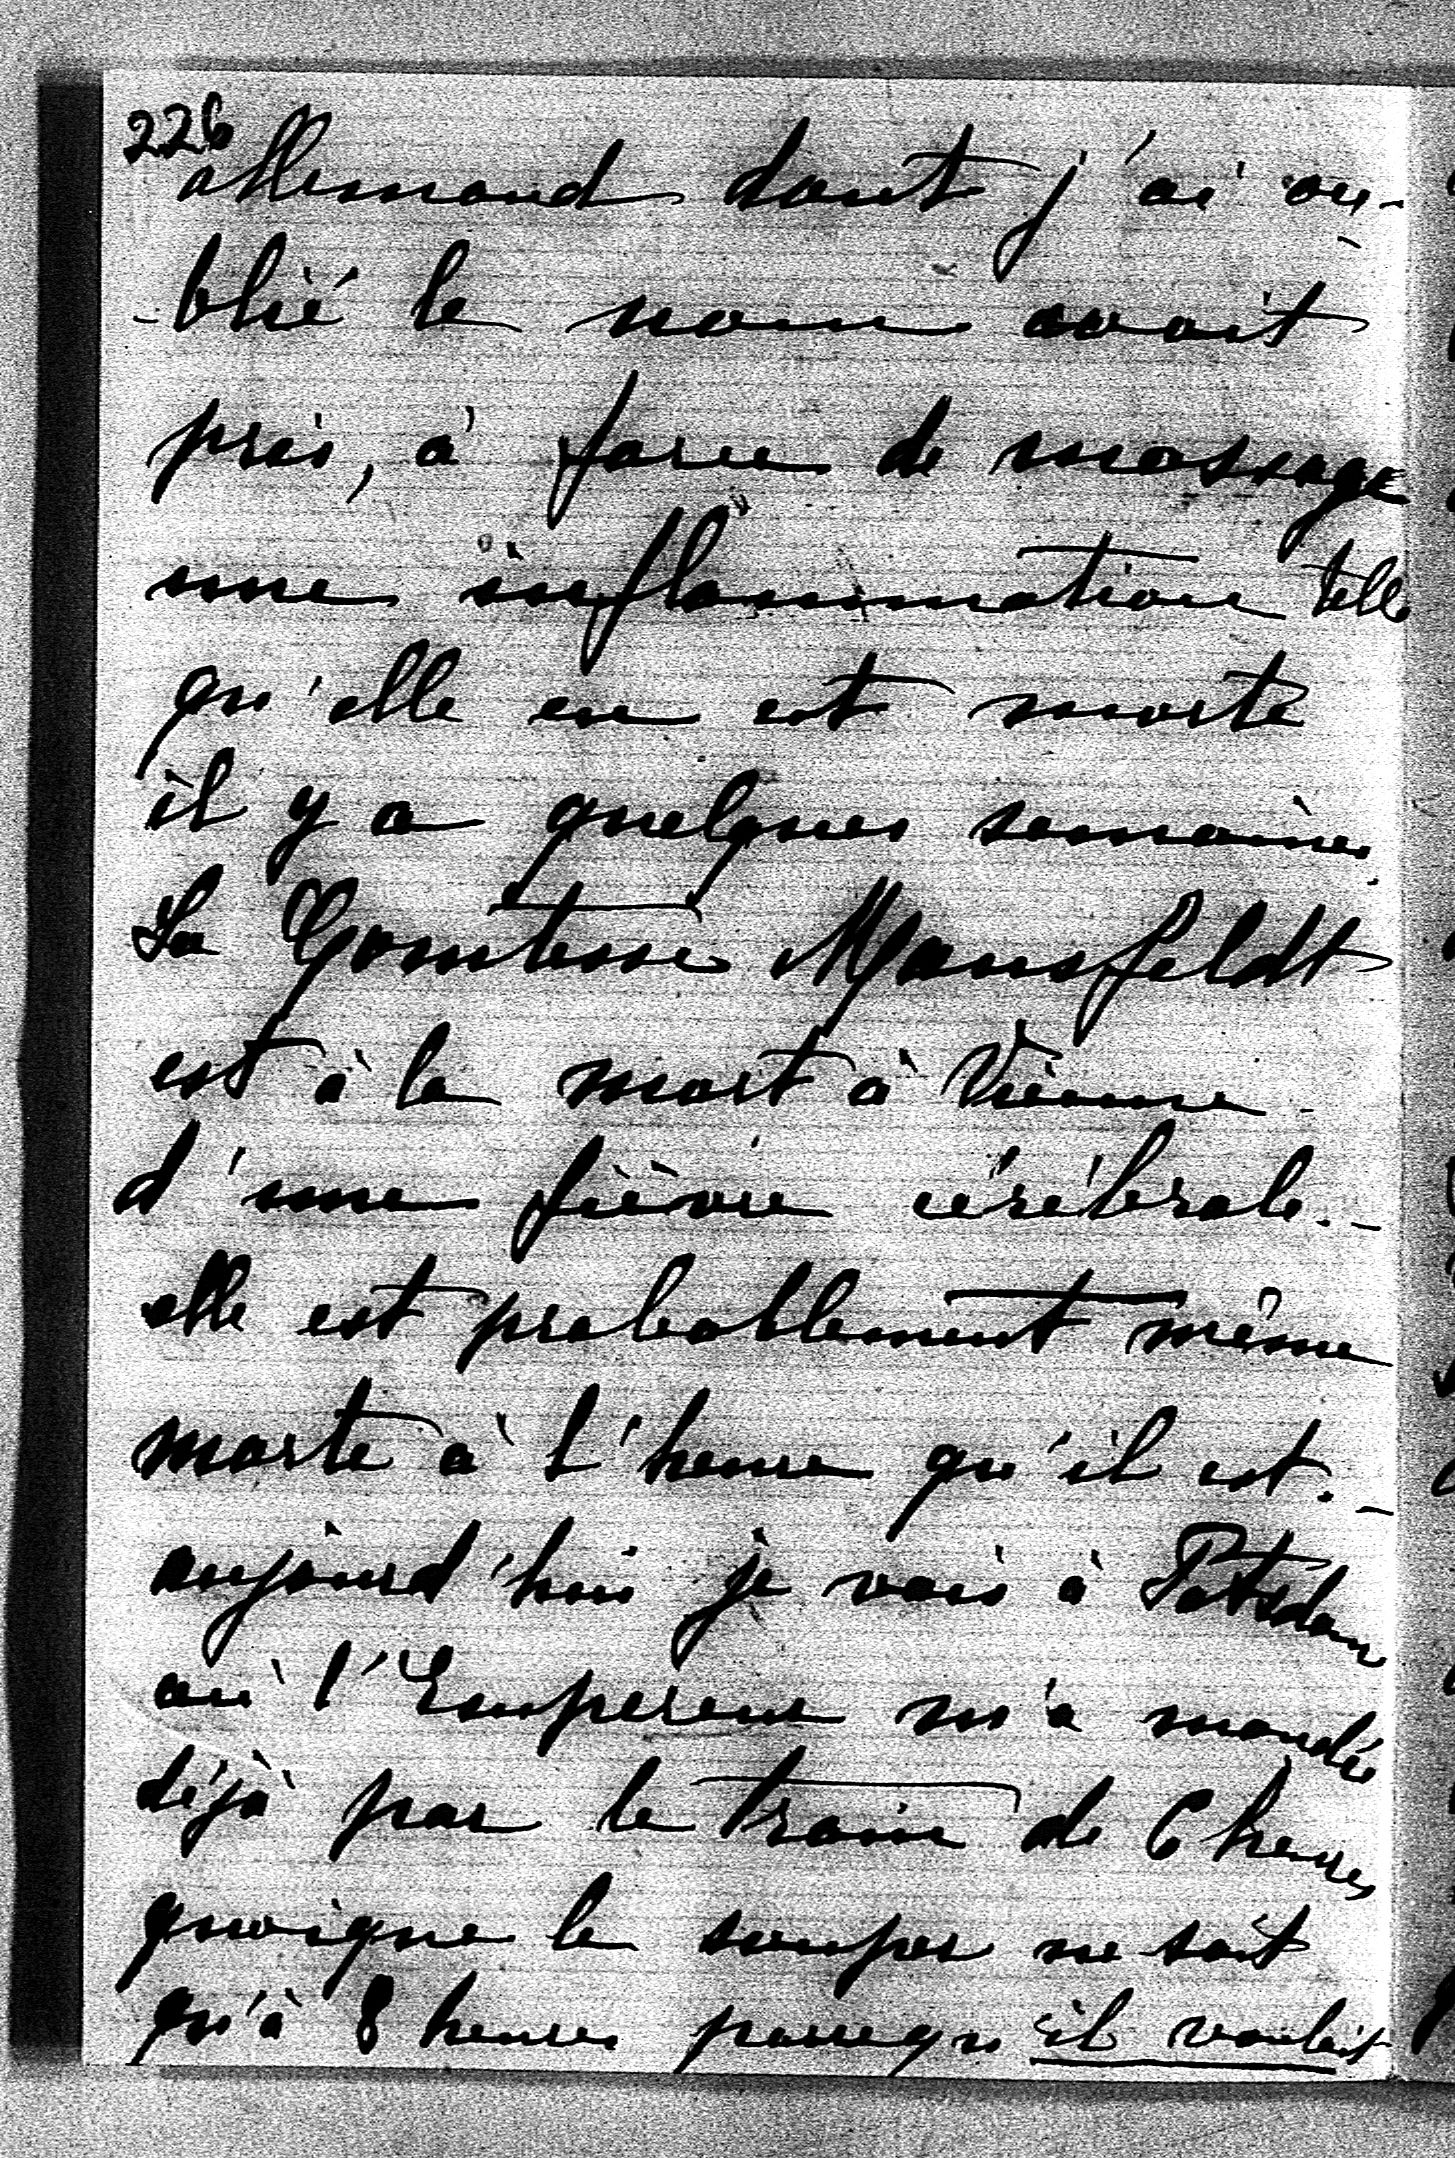 226
allemand dont j'ai ou-
-blié le nom avait
pris, à force de massage
une inflammation telle
qu'elle en est morte
il y a quelques semaines.
La Comtesse Mansfeldt
est à la mort à Vienne
d'une fièvre cérébrale. -
elle est probablement même
morte à l'heure qu'il est. -
aujourd'hui je vais à Potsdam
où l'Empereur m'a mandé
déjà par le train de 6 heures
quoique le souper ne soit
qu'à 8 heures parcequ'il voulait